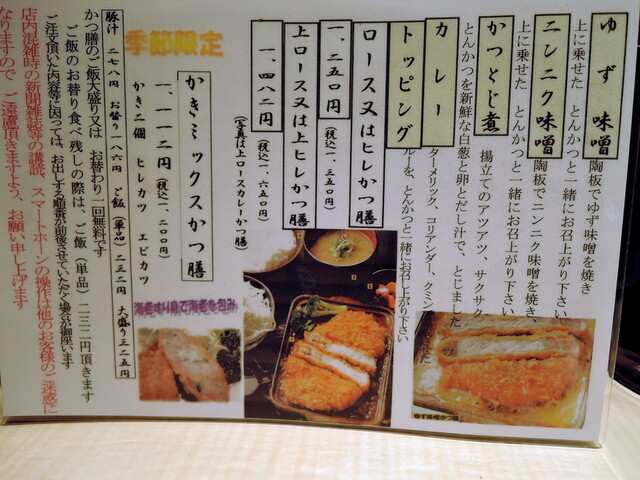 ゆず味噌
陶板でゆず味噌を焼き
上に乗せた とんかつと一緒にお召上がり下さい
ニンニク味噌
陶板でニンニク味噌を焼き、
上に乗せた とんかつと一緒にお召上がり下さい
かつとじ煮
揚立てのアツアツ、サクサク
とんかつを新鮮な白葱と卵とだし汁で、とじました
カレー
ターメリック、コリアンダー、クミン
ルーを、とんかつと一緒にお召上がり下さい
トッピング
ロース又はヒレかつ膳
一、二五〇円 (税込一、三五〇円)
上ロース又は上ヒレかつ膳
一、四八二円 (税込一、六五〇円)
(写真は上ロースカレーかつ膳)
季節限定
かきミックスかつ膳
一、一一二円 (税込一、二〇〇円)
かき二個 ヒレカツ エビカツ
豚汁 二七八円 お替り一八六円 ご飯(単品)二三二円 大盛り三二五円
かつ膳のご飯大盛り又は お替わり一回無料です
ご飯のお替り食べ残しの際は、ご飯(単品)二三二円頂きます
ご注文頂いた内容等に因っては、お出しする順番が前後させていただく場合が御座います
店内混雑時の新聞雑誌等の講読、スマートホーンの操作は他のお客様のご迷惑に
なりますので ご遠慮頂きますよう、お願い申し上げます
海老すり身で海老を包み
ゆず味噌かつ膳